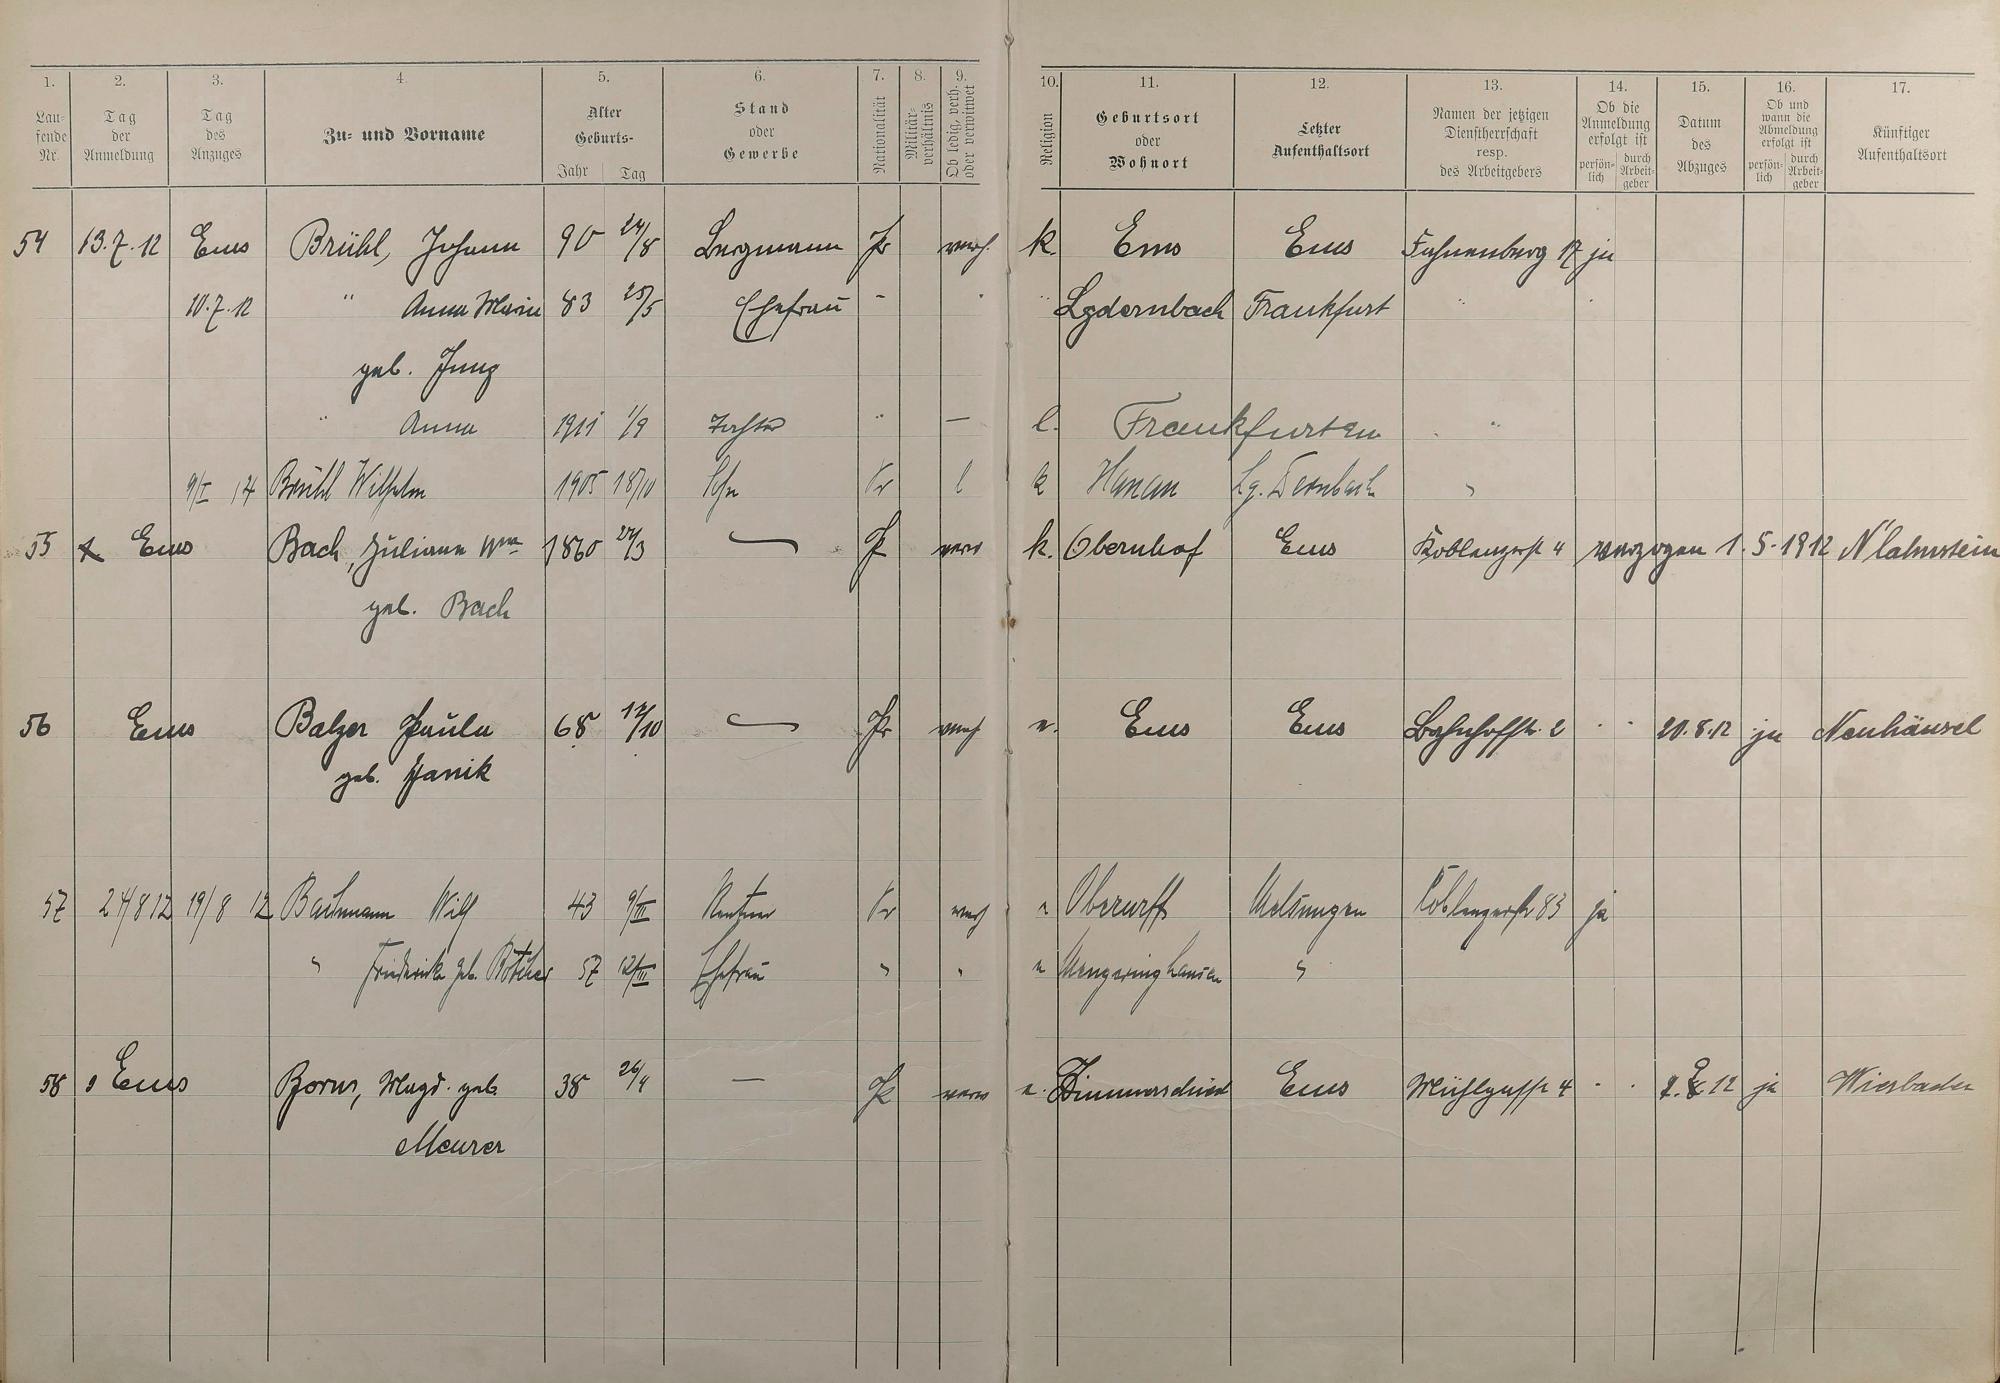 1. 2. 3. 4. 5. 6. 7. 8. 9. 10. 11. 12. 13. 14. 15. 16. 17.
Lau-fende Nr. Tag der Anmeldung Tag des Anzuges Zu- und Vorname Alter Geburts- Jahr Tag Stand oder Gewerbe Nationalität Militär-verhältnis Ob ledig, verh. oder verwitwet Religion Geburtsort oder Wohnort Letzter Aufenthaltsort Namen der jetzigen Dienstherrschaft resp. des Arbeitgebers Ob die Anmeldung erfolgt ist persön-lich durch Arbeit-geber Datum des Abzuges Ob und wann die Abmeldung erfolgt ist persön-lich durch Arbeit-geber Künftiger Aufenthaltsort
54 13.7.12 Ems Brühl, Johann 90 24/8 Bergmann Pr verh. k. Ems Ems 17 ja
10.7.12 " Anna Maria 83 25/5 Ehefrau " " " Lgdernbach Frankfurt "
geb. Jung
" Anna 1911 1/9 Tochter " — Frankfurt "
9/I 14 Brühl Wilhelm 1905 18/10 Sohn Pr l k Hanau Lg. Dernbach "
55 Ems Bach, Juliane Wwe 1860 27/3 — Pr verw k. Obernhof Ems Koblenzerst 4 verzogen 1.5.1912 N'lahnstein
geb. Bach
56 Ems Balzer Paula 68 17/10 — Pr verh e. Ems Ems Bahnhofstr. 2 " " 20.8.12 ja Neuhäusel
geb. Janik
57 24/8 12 19/8 12 Bachmann Wilh 43 9/III Rentner Pr verh e Oberurff Melsungen Koblenzerstr 83 ja
" Friederike geb. Böttcher 57 12/III Ehefrau " " e Mengeringhausen "
58 Ems Born, Magd. geb. 38 26/4 — Pr verw e. Zimmerschied Ems 4 " " 12 ja Wiesbaden
Meurer